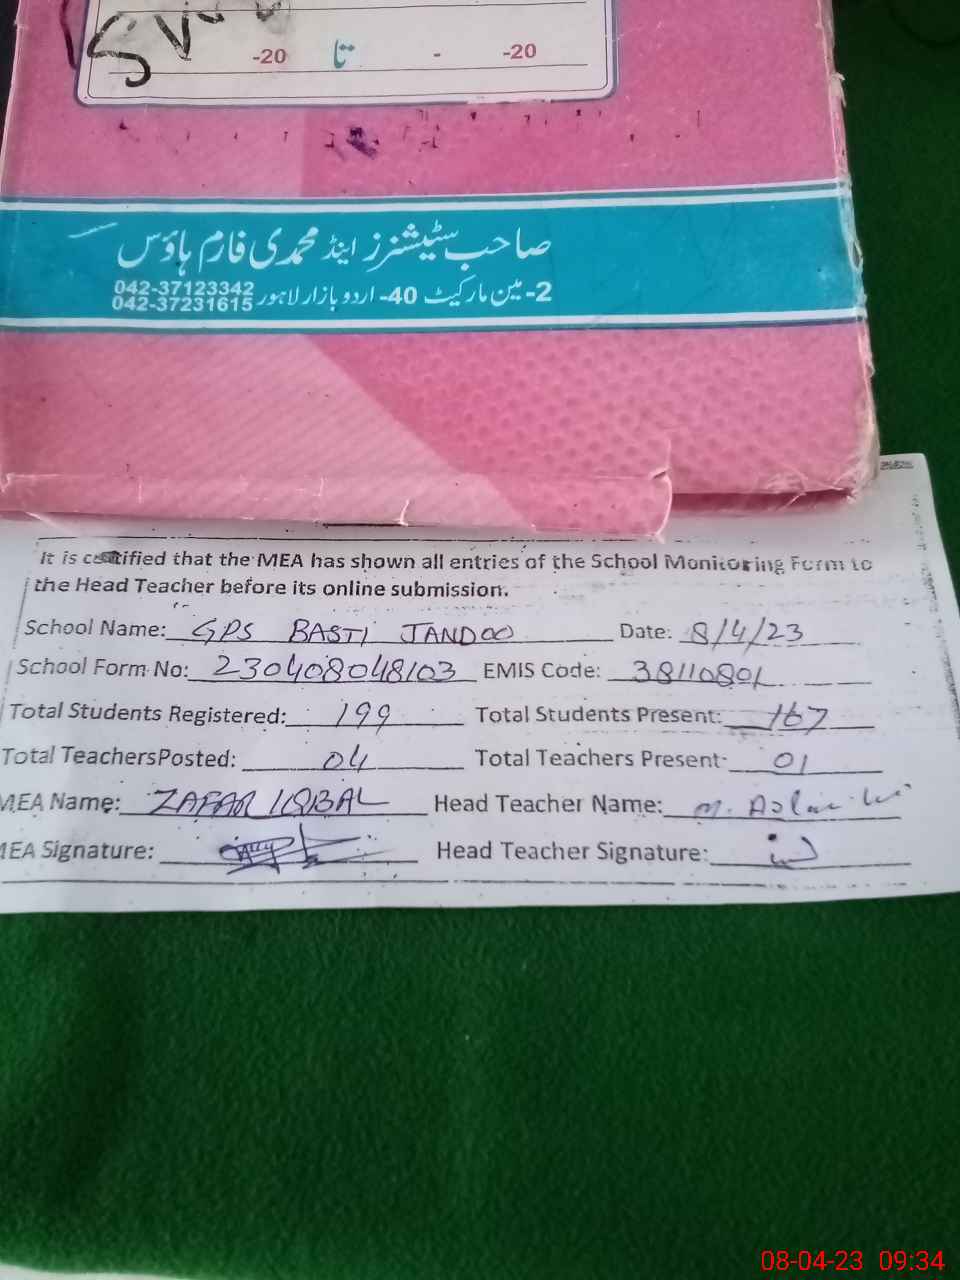 -20 تا - -20
صاحب سٹیشنرز اینڈ محمدی فارم ہاؤس
2- مین مارکیٹ 40- اردو بازار لاہور 042-37123342
042-37231615
It is certified that the MEA has shown all entries of the School Monitoring Form to
the Head Teacher before its online submission.
School Name: GPS BASTI JANDOO Date: 8/4/23
School Form No: 230408048103 EMIS Code: 38110801
Total Students Registered: 199 Total Students Present: 167
Total TeachersPosted: 04 Total Teachers Present: 01
MEA Name: ZAFAR IQBAL Head Teacher Name: M.
MEA Signature: Head Teacher Signature:
08-04-23 09:34